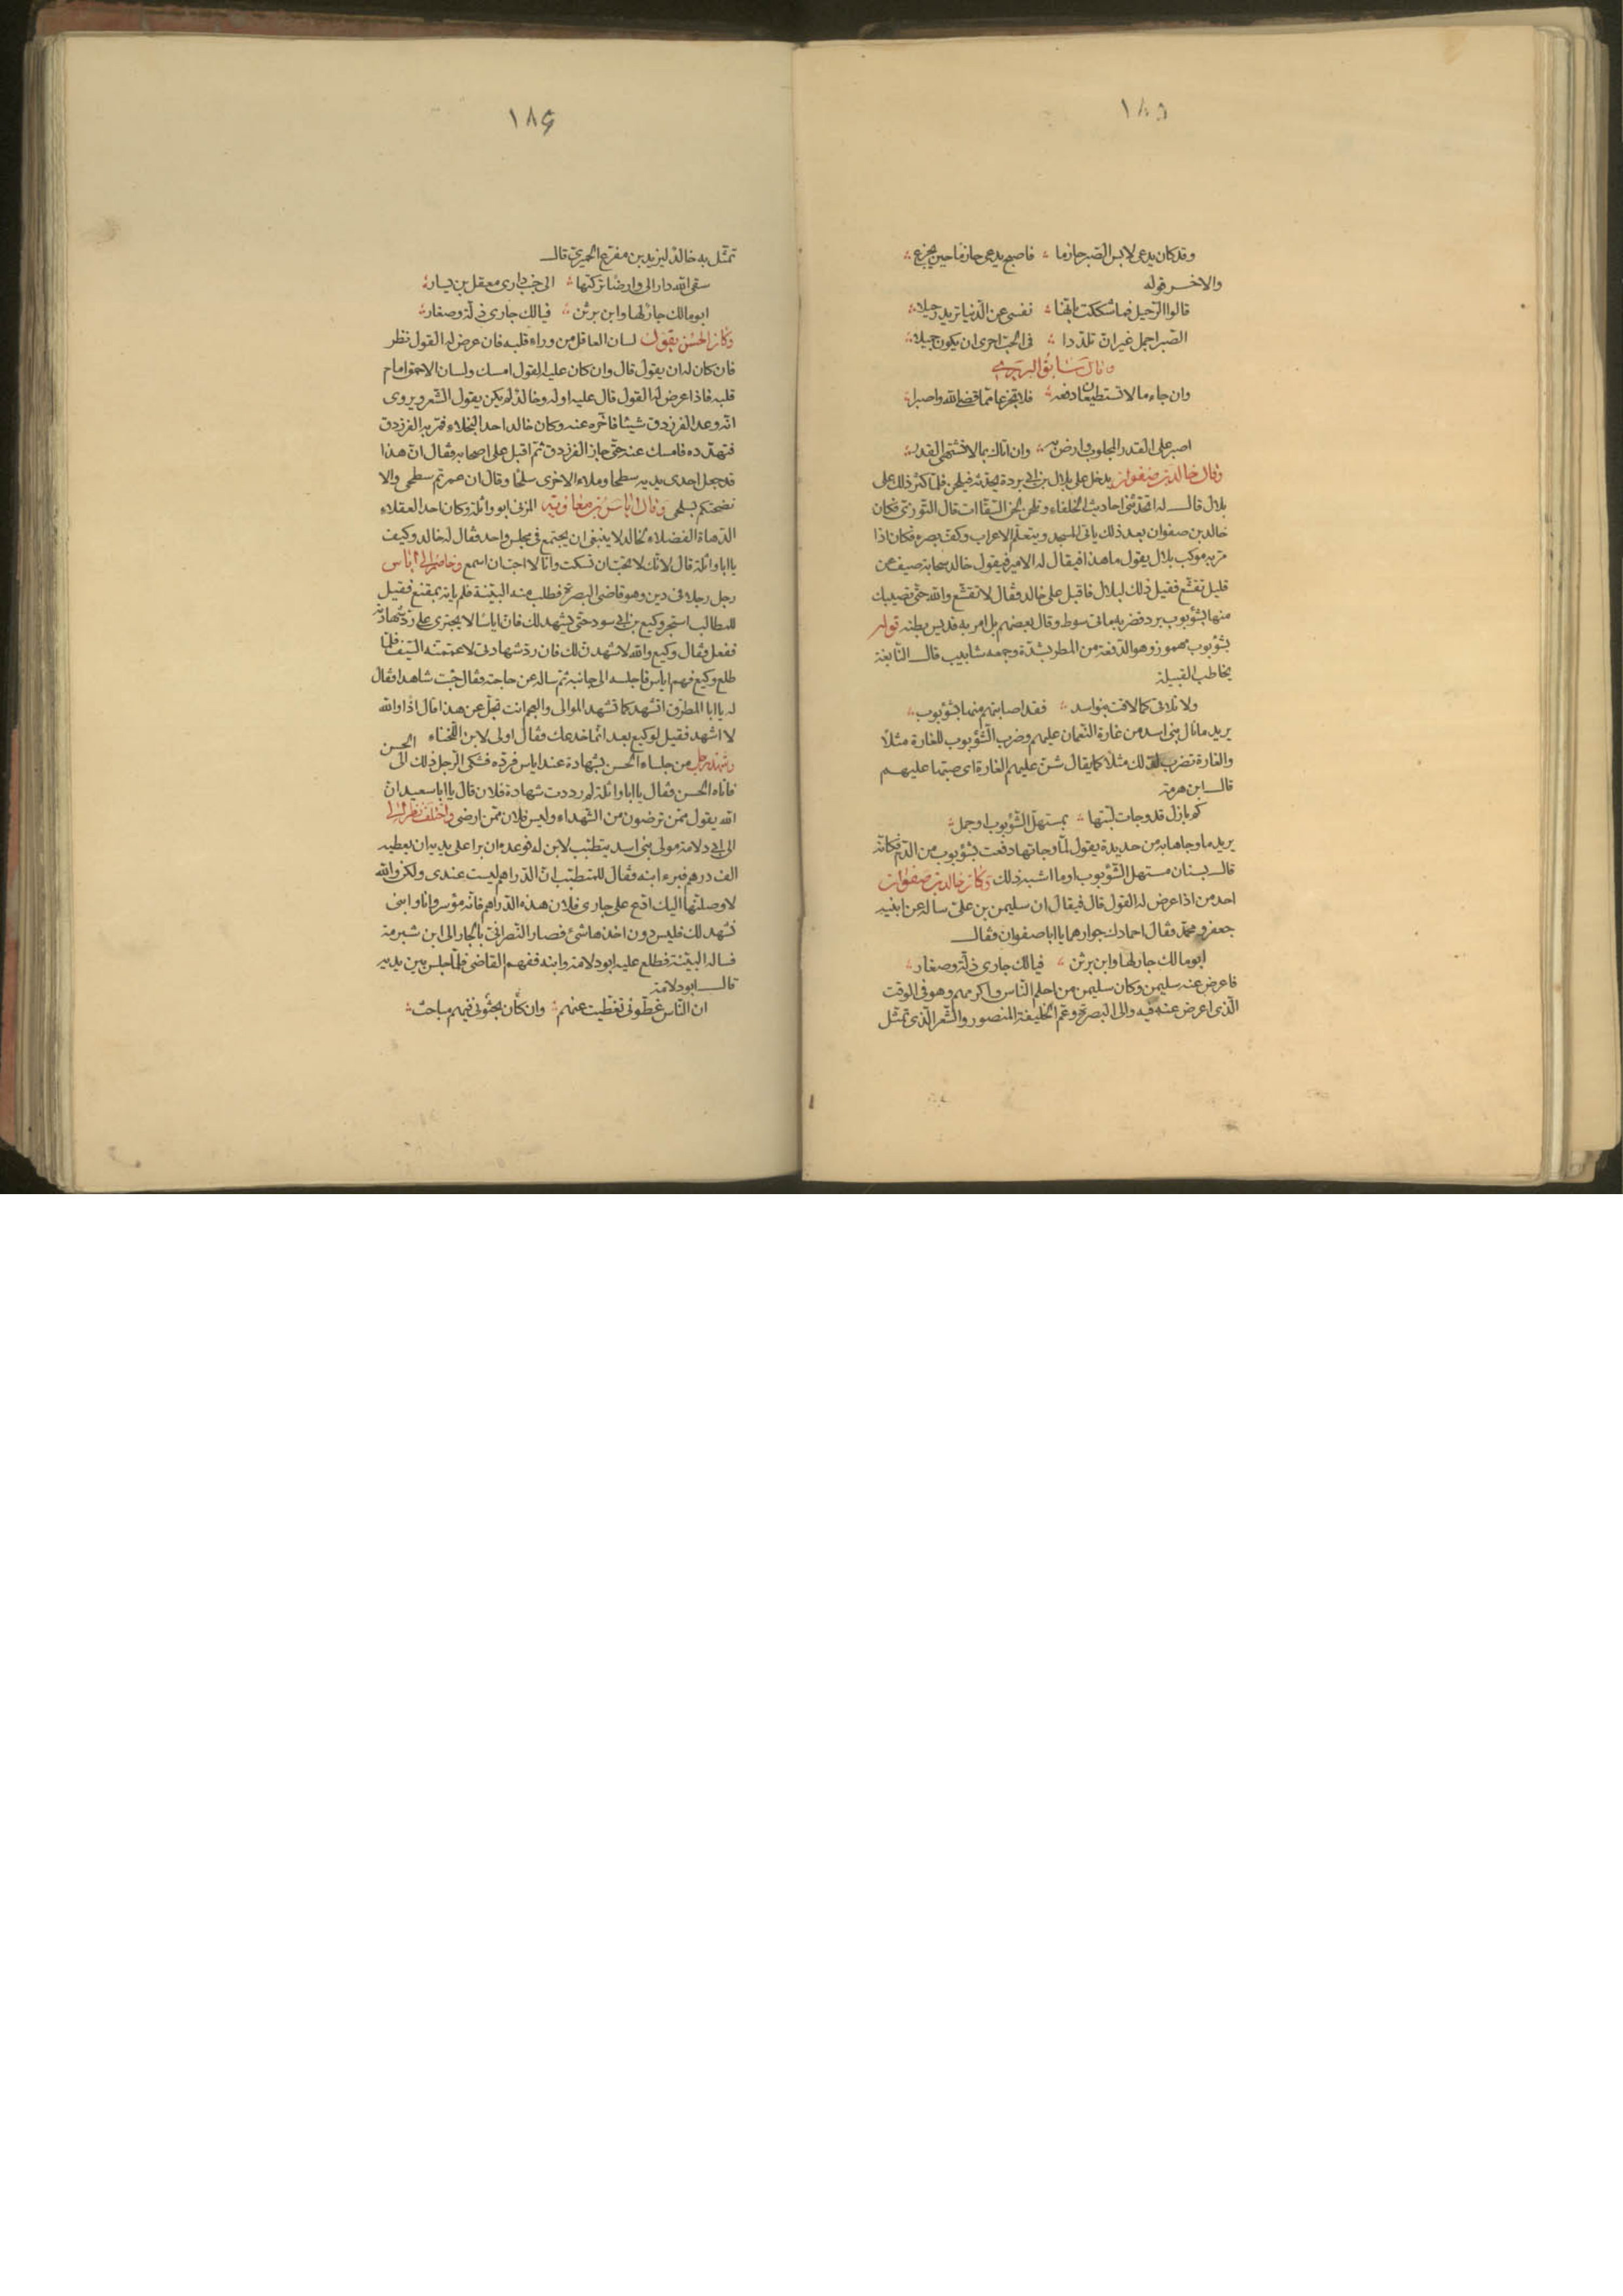 ١٨٥
وقد كان يدعى لابس الصبر حازما فاصبح يدعى حازما حين يجزع
والاخر قوله
قالوا الرحيل فما شككت بانها نفسى عن الدنيا تريد رحيلا
الصبر اجمل غير ان تلددا فى الحب احرى ان يكون جميلا
وقال سابق البربرى
وان جاء ما لا تستطيعان دفعه فلا تجزعا مما قضى الله واصبرا
اصبر على القدر المجلوب وارض به وان اتاك بما لا تشتهى القدر
وكان خالد بن صفوان يدخل على بلال بن ابى بردة يحدثه فيلحن فلما كثر ذلك على
بلال قال له اتحدثنى احاديث الخلفاء وتلحن لحن السقاات قال التوزى فكان
خالد بن صفوان بعد ذلك ياتى المسجد ويتعلم الاعراب وكف بصره فكان اذا
مر به موكب بلال يقول ما هذا فيقال له الامير فيقول خالد سحابة صيف عن
قليل تقشع فقيل ذلك لبلال فاقبل على خالد فقال لا تقشع والله حتى تصيبك
منها بشؤبوب برد فضربه مائتى سوط وقال بعضهم بل امر به فديس بطنه قوله
بشؤبوب مهموز وهو الدفعة من المطر بشدة وجمعه شابيب قال النابغة
يخاطب القبيلة
ولا تلاقى كما لاقت بنو اسد فقد اصابتهم منها بشؤبوب
يريد ما نال بنى اسد من غارة النعمان عليهم وضرب الشؤبوب للغارة مثلا
والغارة تضرب لذلك مثلا كما يقال شن عليهم الغارة اى صبتها عليهم
قال ابن هرمة
كم بازل قد وجات لبتها بمستهل الشؤبوب او جمل
يريد ما وجاها به من حديدة يقول لما وجاتها دفعت بشؤبوب من الدم فكانه
قال بسنان مستهل الشؤبوب او ما اشبه ذلك وكان خالد بن صفوان
احد من اذا عرض له القول قال فيقال ان سليمن بن على ساله عن ابنيه
جعفر ومحمد فقال احمادك جوارهما يا ابا صفوان فقال
ابو مالك جار لها وابن برثن فيا لك جارى ذلة وصغار
فاعرض عنه سليمن وكان سليمن من احلم الناس واكرمهم وهو فى الوقت
الذى اعرض عنه فيه والى البصرة وعم الخليفة المنصور والشعر الذى تمثل
١٨۶
تمثل به خالد ليزيد بن مفرغ الحميرى قال
سقى الله دارا لى وارضا تركتها الى جنب دارى معقل بن يسار
ابو مالك جار لها وابن برثن فيا لك جارى ذلة وصغار
وكان الحسن يقول لسان العاقل من وراء قلبه فان عرض له القول نظر
فان كان له ان يقول قال وان كان عليه القول امسك ولسان الاحمق امام
قلبه فاذا عرض له القول قال عليه او له وخالد لم يكن يقول الشعر ويروى
انه وعد الفرزدق شيئا فاخره عنه وكان خالد احد البخلاء فمر به الفرزدق
فتهدده فامسك عنه حتى جاز الفرزدق ثم اقبل على اصحابه فقال ان هذا
قد جعل احدى يديه سطحا وملاء الاخرى سلحا وقال ان عمرتم سطحى والا
نضحتكم بسلحى وقال اياس بن معاوية المزنى ابو واثلة وكان احد العقلاء
الدهاة الفضلاء لخالد لا ينبغى ان يجتمع فى مجلس واحد فقال له خالد وكيف
يا ابا واثلة قال لانك لا تحب ان تسكت وانا لا احب ان اسمع وخاصم الى اياس
رجل رجلا فى دين وهو قاضى البصرة فطلب منه البينة فلم ياته بمقنع فقيل
للمطالب استجر وكيع بن ابى سود حتى يشهد لك فان اياسا لا يجترى على رد شهادته
ففعل فقال وكيع والله لاشهدن لك فان رد شهادتى لاعممنه السيف فلما
طلع وكيع فهم اياس فاجلسه الى جانبه ثم ساله عن حاجته فقال جئت شاهدا فقال
له يا ابا المطرف اتشهد كما تشهد الموالى والعجم انت تجل عن هذا قال اذا والله
لا اشهد فقيل لوكيع بعد انما خدعك فقال اولى لابن اللخناء
وشهد رجل من جلساء الحسن بشهادة عند اياس فرده فشكى الرجل ذلك الى الحسن
فاتاه الحسن فقال يا ابا واثلة لم رددت شهادة فلان قال يا ابا سعيد ان
الله يقول ممن ترضون من الشهداء وليس فلان ممن ارضى واختلف نصرانى
الى ابى دلامة مولى بنى اسد يتطبب لابن له فوعده ان برا على يديه ان يعطيه
الف درهم فبرء ابنه فقال للمتطبب ان الدراهم ليست عندى ولكن والله
لاوصلنها اليك ادع على جارى فلان هذه الدراهم فانه مؤسر وانا وابنى
نشهد لك فليس دون اخذها شئ فصار النصرانى بالجار الى ابن شبرمة
فساله البينة فطلع عليه ابو دلامة وابنه ففهم القاضى فلما جلس بين يديه
قال ابو دلامة
ان الناس غطونى تغطيت عنهم وان كان بحثونى ففيهم مباحث